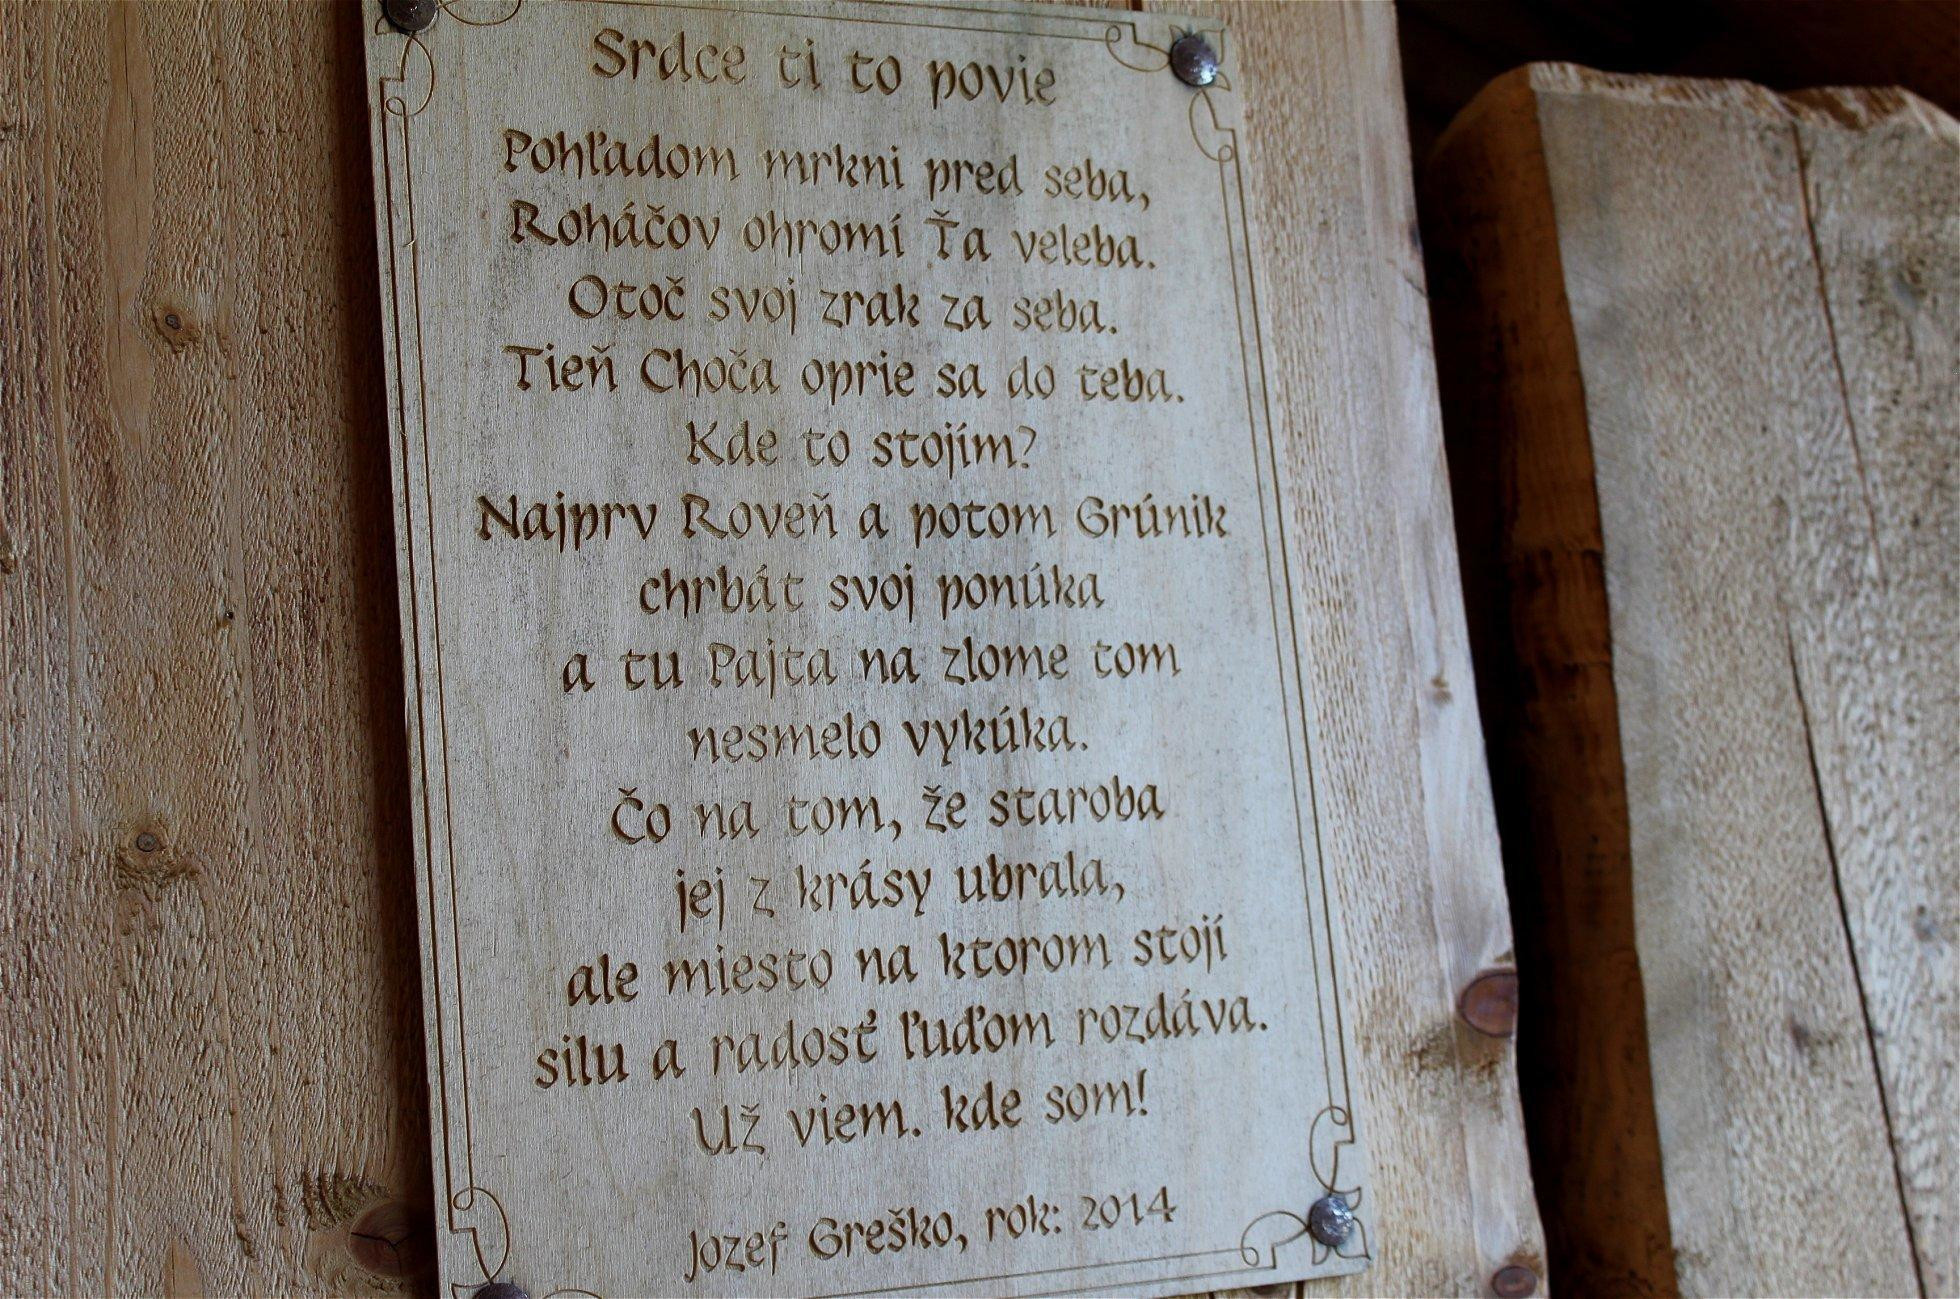 Srdce ti to povie
Pohľadom mrkni pred seba,
Roháčov ohromí Ťa veleba.
Otoč svoj zrak za seba.
Tieň Choča oprie sa do teba.
Kde to stojím?
Najprv Roveň a potom Grúnik
chrbát svoj ponúka
a tu Pajta na zlome tom
nesmelo vykúka.
Čo na tom, že staroba
jej z krásy ubrala,
ale miesto na ktorom stojí
silu a radosť ľuďom rozdáva.
Už viem. kde som!
Jozef Greško, rok: 2014